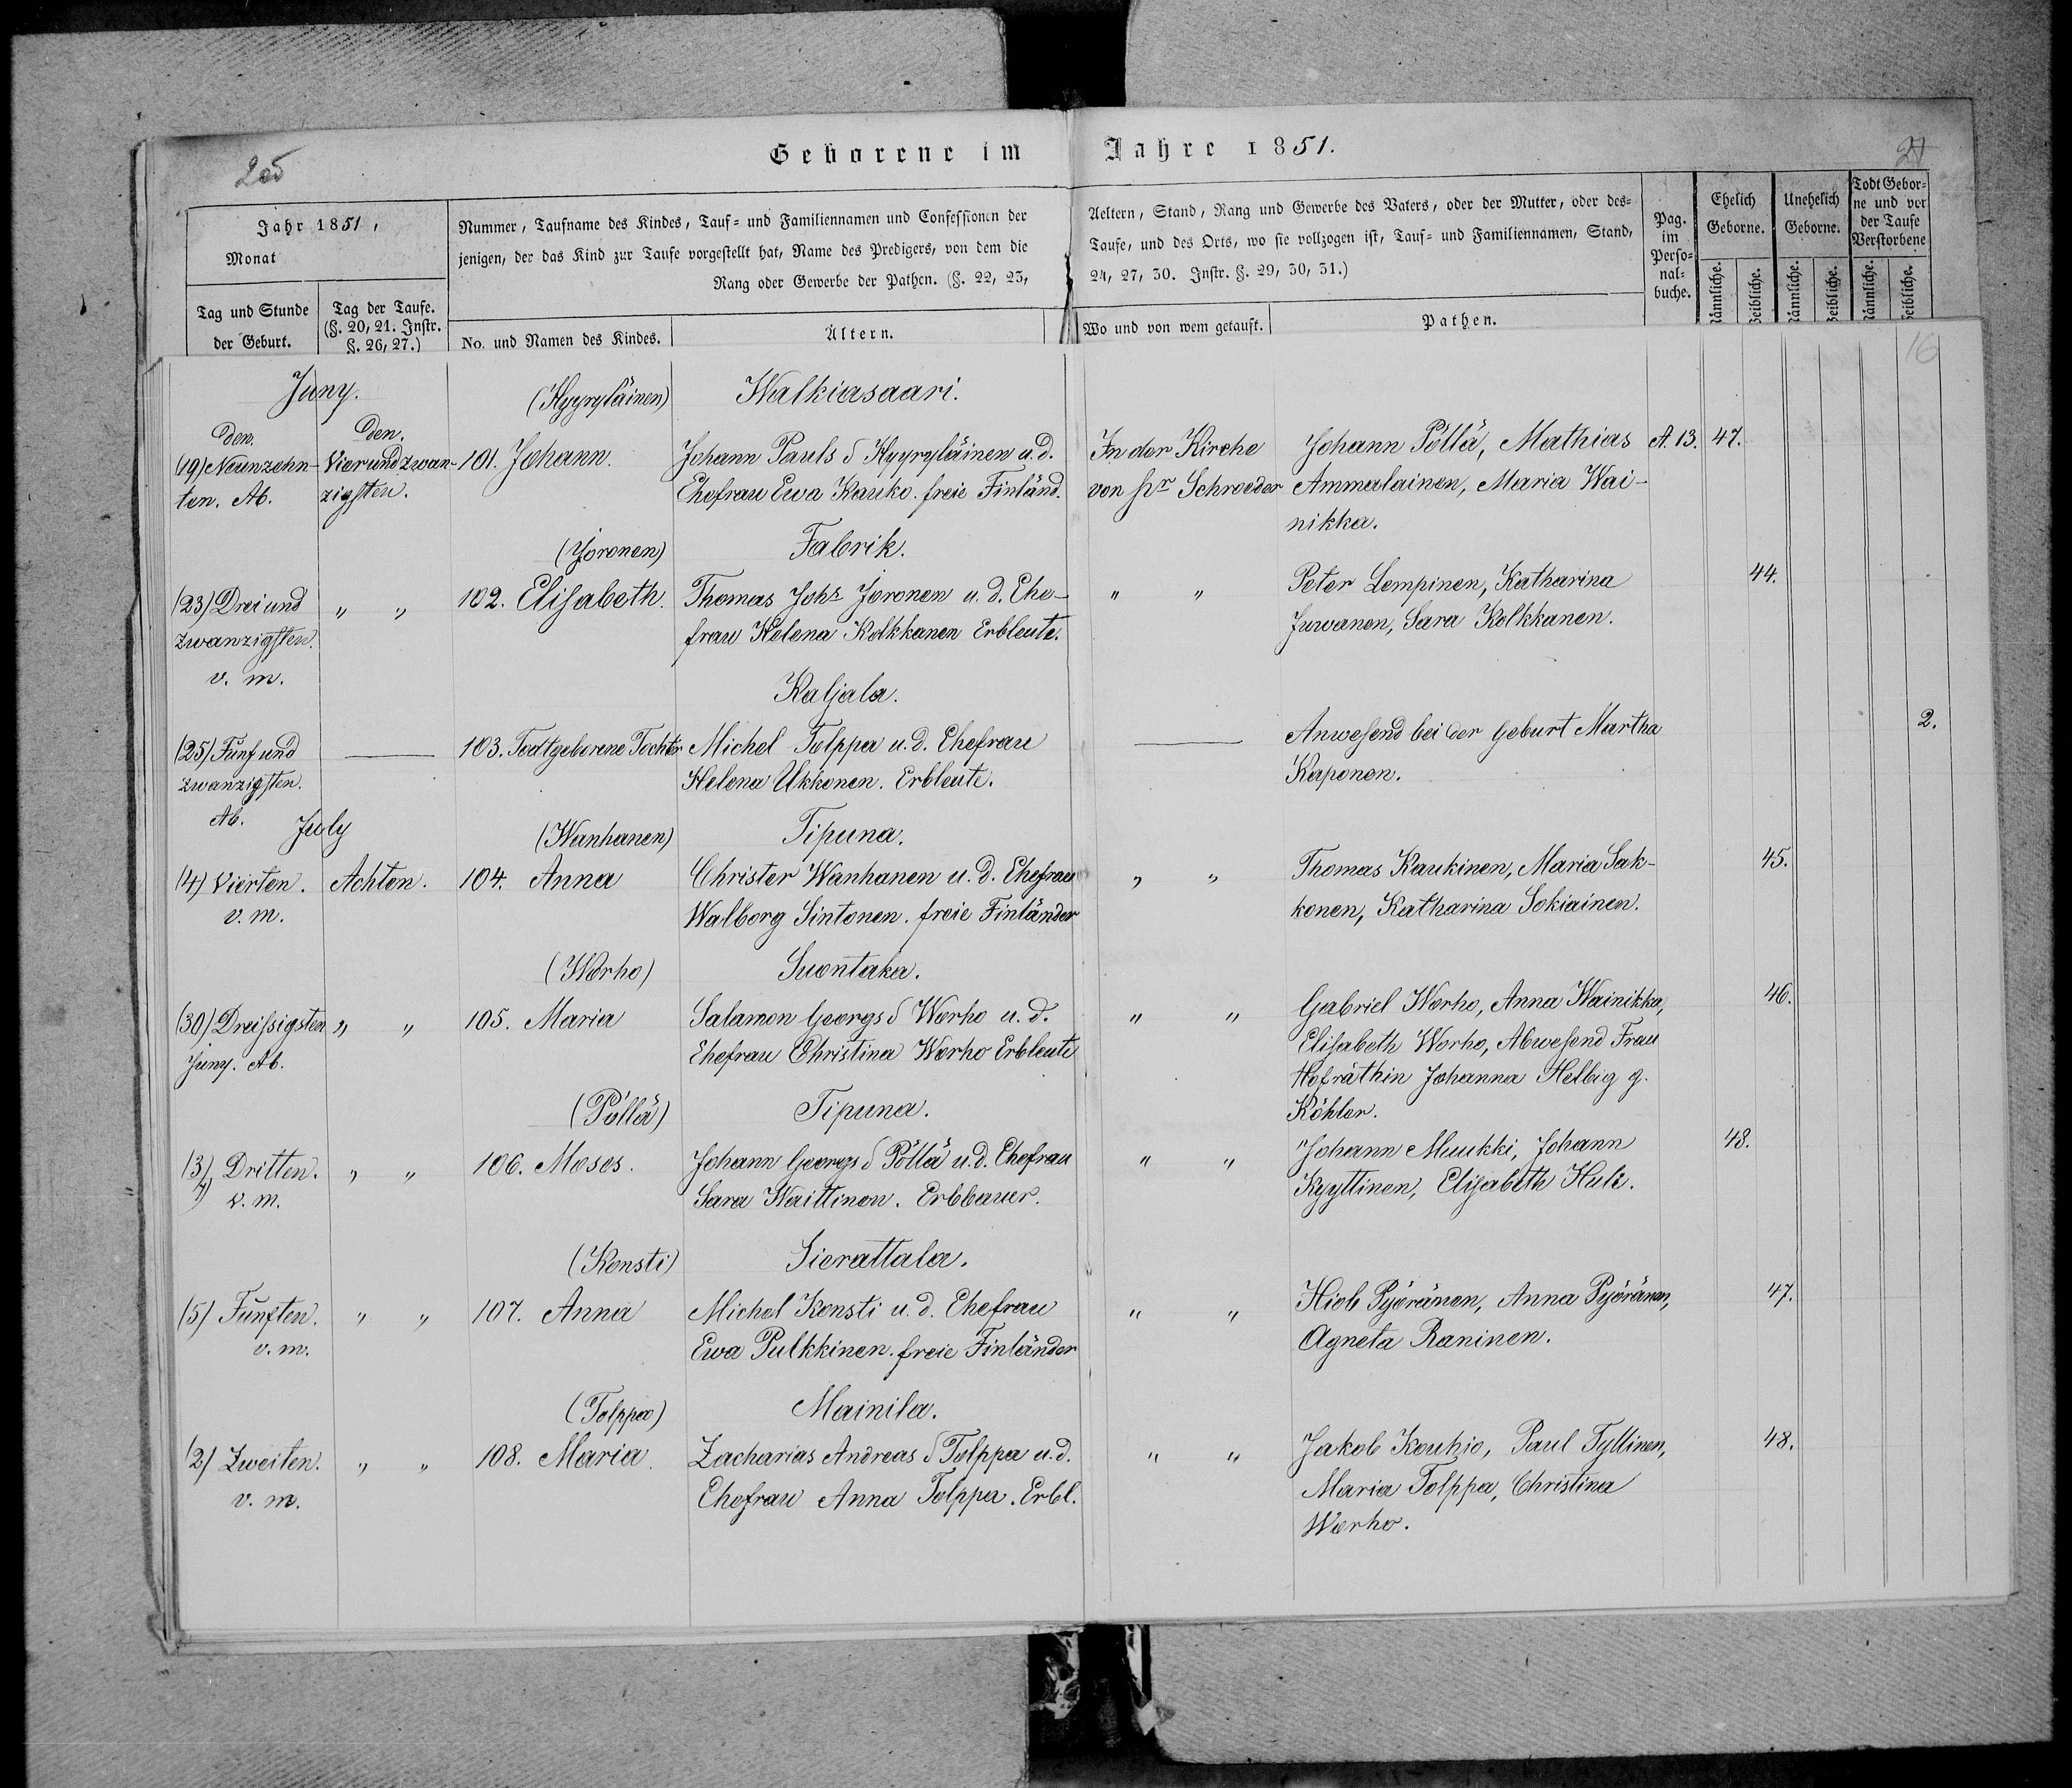 Geborene im Jahre 1851.
Jahr 1851,
Monat
Tag und Stunde der Geburt.
Tag der Taufe. (§. 20, 21. Instr. §. 26, 27.)
Nummer, Taufname des Kindes, Tauf- und Familiennamen und Confessionen der Aeltern, Stand, Rang und Gewerbe des Vaters, oder der Mutter, oder des-
jenigen, der das Kind zur Taufe vorgestellt hat, Name des Predigers, von dem die Taufe, und des Orts, wo sie vollzogen ist, Tauf- und Familiennamen, Stand,
Rang oder Gewerbe der Pathen. (§. 22, 23, 24, 27, 30. Instr. §. 29, 30, 31.)
No. und Namen des Kindes.
Ältern.
Wo und von wem getauft.
Pathen.
Pag. im Perso-nal-buche.
Ehelich Geborne.
Unehelich Geborne.
Todt Gebor-ne und vor der Taufe Verstorbene
16
Juny. (Hyyryläinen) Walkiasaari.
den. den.
(19) Neunzehn- Vierundzwan- 101. Johann. Johann Pauls S Hyyryläinen u. d. In der Kirche Johann Pöllä, Mathias A. 13. 47.
ten. Ab. zigsten. Ehefrau Ewa Kauko. freie Finländ. von Pr Schroeder Ammalainen, Maria Wai-
nikka.
(Joronen) Fabrik.
(23) Drei und " " 102. Elisabeth. Thomas Johs Joronen u. d. Ehe- " " Peter Lempinen, Katharina 44.
zwanzigsten. frau Helena Kolkkanen Erbleute. Juvanen, Sara Kolkkanen.
v. m.
Kaljala.
(25) Fünf und — 103. Todtgeborene Tochter Michel Tolppa u. d. Ehefrau — Anwesend bei der Geburt Martha 2.
zwanzigsten. Helena Ukkonen. Erbleute. Kaponen.
Ab.
July (Wanhanen) Tipuna.
(4) Vierten. Achten. 104. Anna Christer Wanhanen u. d. Ehefrau " " Thomas Kaukinen, Maria Sak- 45.
v. m. Walborg Sintonen. freie Finländer konen, Katharina Sokiainen.
(Worho) Suontaka.
(30) Dreissigsten " " 105. Maria Salamon Georgs S Worho u. d. " " Gabriel Worho, Anna Wainikka, 46.
Juny. Ab. Ehefrau Christina Worho Erbleute Elisabeth Worho, Abwesend Frau
Hofräthin Johanna Helbig g.
Köhler.
(Pöllä) Tipuna.
(3) Dritten. " " 106. Moses. Johann Georgs S Pöllä u. d. Ehefrau " " Johann Muukki, Johann 48.
v. m. Sara Waittinen. Erbbauer. Kyyttinen, Elisabeth Huli.
(Konsti) Sierattala.
(5) Fünften. " " 107. Anna Michel Konsti u. d. Ehefrau " " Hiob Pyöränen, Anna Pyöränen, 47.
v. m. Ewa Pulkkinen. freie Finländer Agneta Raninen.
(Tolppa) Mainila.
(2) Zweiten. " " 108. Maria. Zacharias Andreas S Tolppa u. d. " " Jakob Kouhio, Paul Tyllinen, 48.
v. m. Ehefrau Anna Tolppa. Erbl. Maria Tolppa, Christina
Worho.